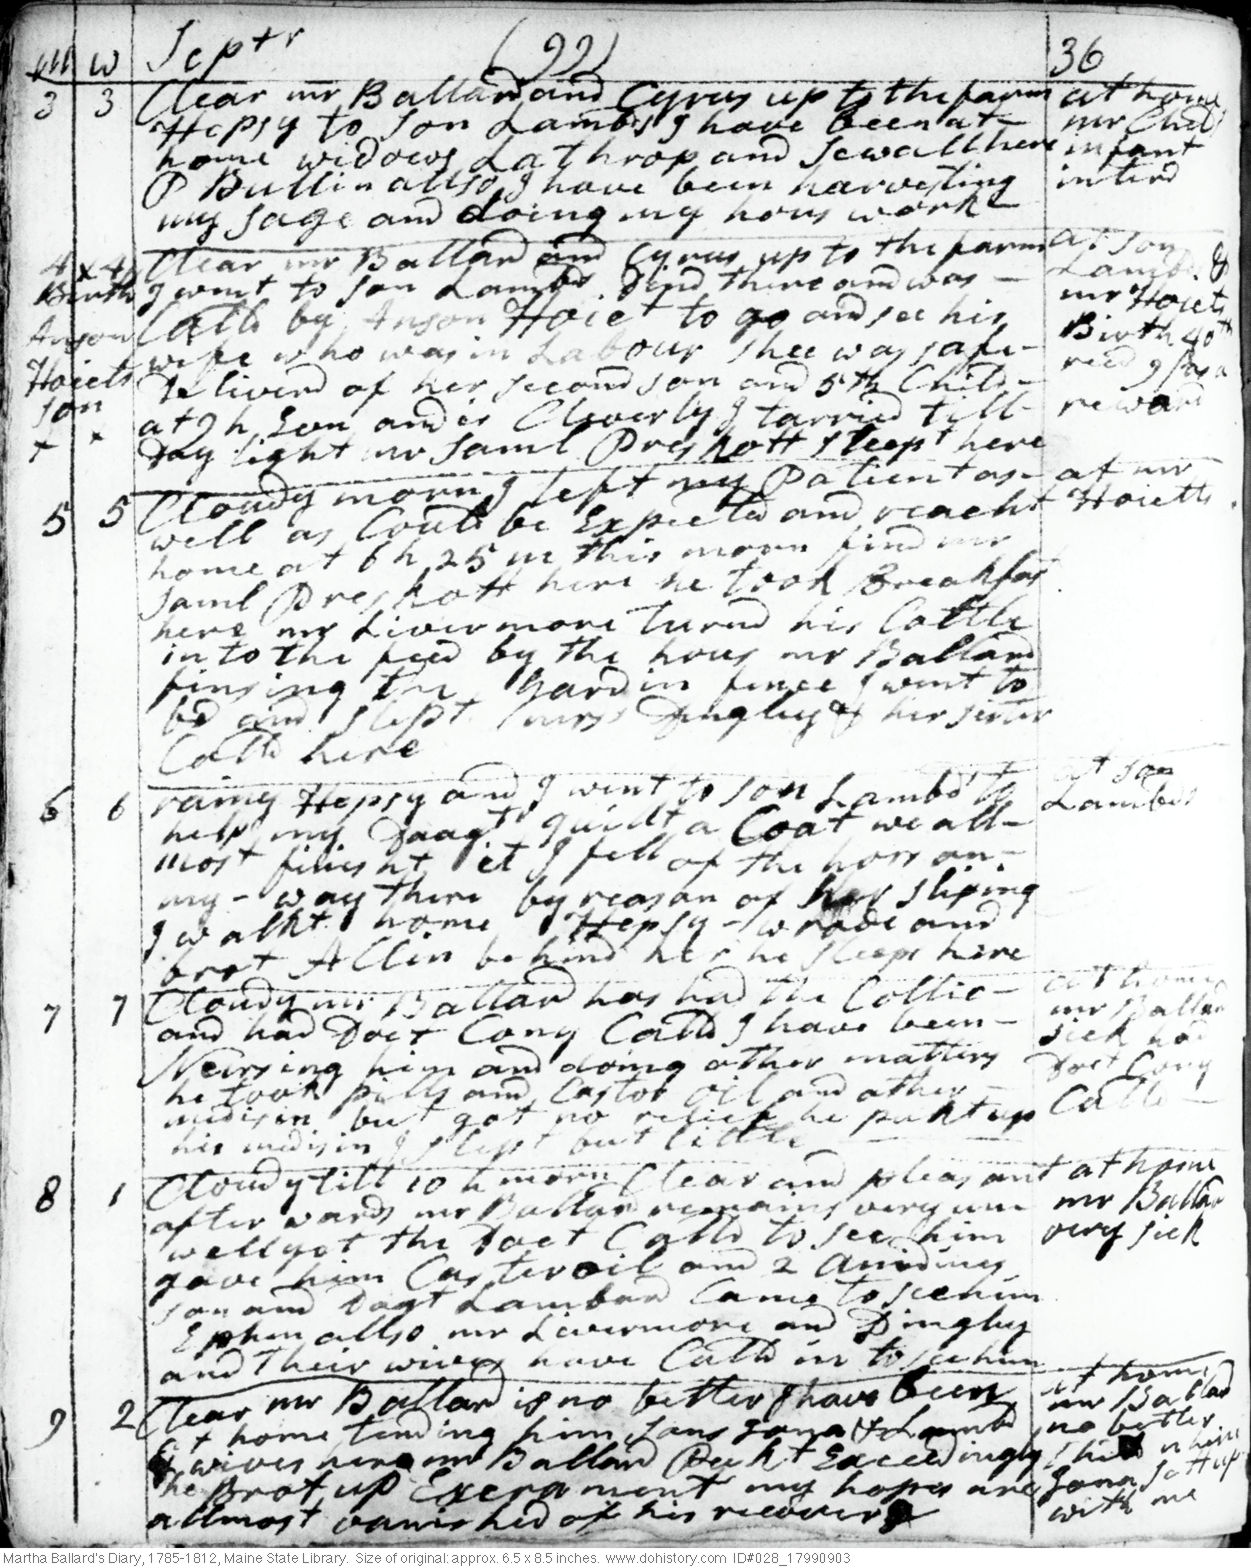 m w Septr (99) 36
3 3 Clear mr Ballard and Cyrus up to the farm at home
Hepsy to son Lambds I have been at mr Childs
home widows Lathrop and Sewall here infant
P Bullin allso, I have been harvesting interd
my sage and doing my hous work
4 x 4 Clear mr Ballard and Cyrus up to the farm at son
Birth I went to son Lambds dind there and was Lambds &
Anson Calld by Anson Hoiet to go and see his mr Hoiets
Hoiets wife who was in Labour shee was safe Birth 40th
son Deliverd of her second son and 5th Child recd 9/ as a
x x at 9 h Evn and is Cleverly I tarried till reward
Day light mr Saml Preskott sleept here
5 5 Cloudy morn I left my Patient as at mr
well as Could be Expected and reacht Hoietts
home at 6 h 25 m this morn find mr
Saml Preskott here he took Breakfast
here mr Livermore turnd his Cattle
into the feed by the hous mr Ballard
finsing the gardin fence I went to
bed and slept mrss Dingley & her sister
Calld here
6 6 rainy Hepsy and I went to son Lambds to at son
help my Daagt quillt a Coat we all- Lambds
most finisht it I fell of the hors on
my - way there by reason of her sliping
I walkt home Hepsy rode and
brot Allin behind her he sleeps here
7 7 Cloudy mr Ballard has had the Collic at home
and had Doct Cony Calld I have been mr Ballard
Neirsing him and doing other matters sick had
he took pills and Castor oil and other Doct Cony
medisin but got no relief he pukt up Calld
his medisin I slept but little
8 1 Cloudy till 10 h morn Clear and pleasant at home
after wards mr Ballard remains very un mr Ballard
well got the Doct Calld to see him very sick
gave him Castor oil and 2 Anidines
son and Dagt Lambard Came to see him
Ephm allso mr Livermore and Dingley
and their wives have Calld in to see him
9 2 Clear mr Ballard is no better I have been at home
at home tending him sons Jona & Lambd mr Ballard
& wives here mr Ballard Peukt Exceedingly no better
he Brot up Excrament my hopes are Jona sett up
allmost vanished of his recovery with me
Martha Ballard's Diary, 1785-1812, Maine State Library. Size of original: approx. 6.5 x 8.5 inches. www.dohistory.com ID#028_17990903